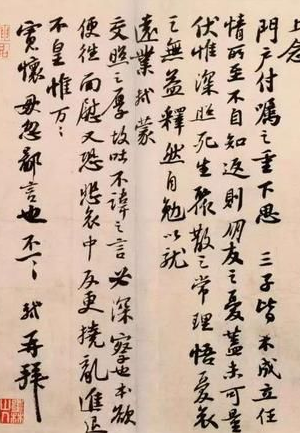 上念
門戶付囑之重下思 三子皆不成立任
情所至不自知返則朋友之憂蓋未可量
伏惟深照死生聚散之常理悟憂哀
之無益釋然自勉以就
遠業軾蒙
交照之厚故吐不諱之言必深察也本欲
便往面慰又恐悲哀中反更撓亂進退
不皇惟万〻
寬懷毋忽鄙言也不一〻軾再拜